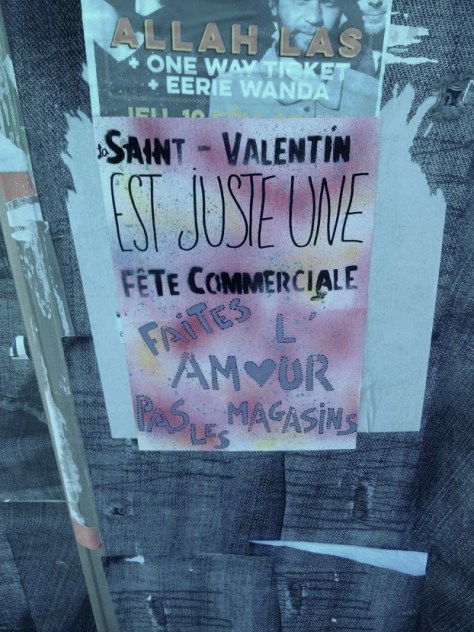 ALLAH LAS
+ ONE WAY TICKET
+ EERIE WANDA
la SAINT - VALENTIN
EST JUSTE UNE
FÊTE COMMERCIALE
FAITES L'
AM♥UR
PAS LES MAGASINS